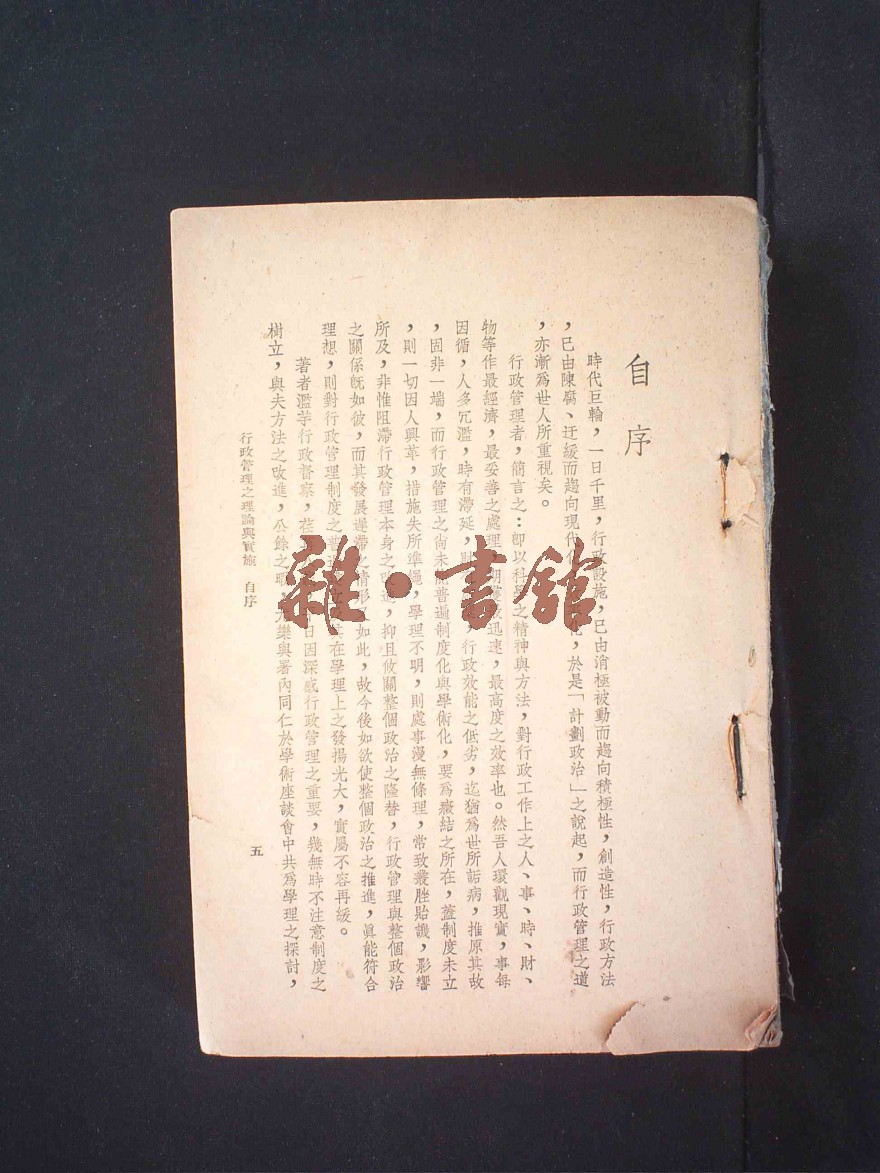 自序
時代巨輪，一日千里，行政設施，已由消極被動而趨向積極性，創造性，行政方法
，已由陳腐、迂緩而趨向現代化，於是「計劃政治」之說起，而行政管理之道
，亦漸爲世人所重視矣。
行政管理者，簡言之：卽以科學之精神與方法，對行政工作上之人、事、時、財、
物等作最經濟，最妥善之處理，迅速，最高度之效率也。然吾人環觀現實，事每
因循，人多冗濫，時有滯延，行政效能之低劣，迄猶爲世所詬病，推原其故
，固非一端，而行政管理之尙未能普遍制度化與學術化，要爲癥結之所在，蓋制度未立
，則一切因人興革，措施失所準繩，學理不明，則處事漫無條理，常致叢脞貽譏，影響
所及，非惟阻滯行政管理本身之改進，抑且攸關整個政治之隆替，行政管理與整個政治
之關係旣如彼，而其發展遲滯之情形如此，故今後如欲使整個政治之推進，眞能符合
理想，則對行政管理制度之在學理上之發揚光大，實屬不容再緩。
著者濫芋行政督察，日因深感行政管理之重要，幾無時不注意制度之
樹立，與夫方法之改進，公餘之暇，樂與署內同仁於學術座談會中共爲學理之探討，
行政管理之理論與實施 自序
五
雜·書舘